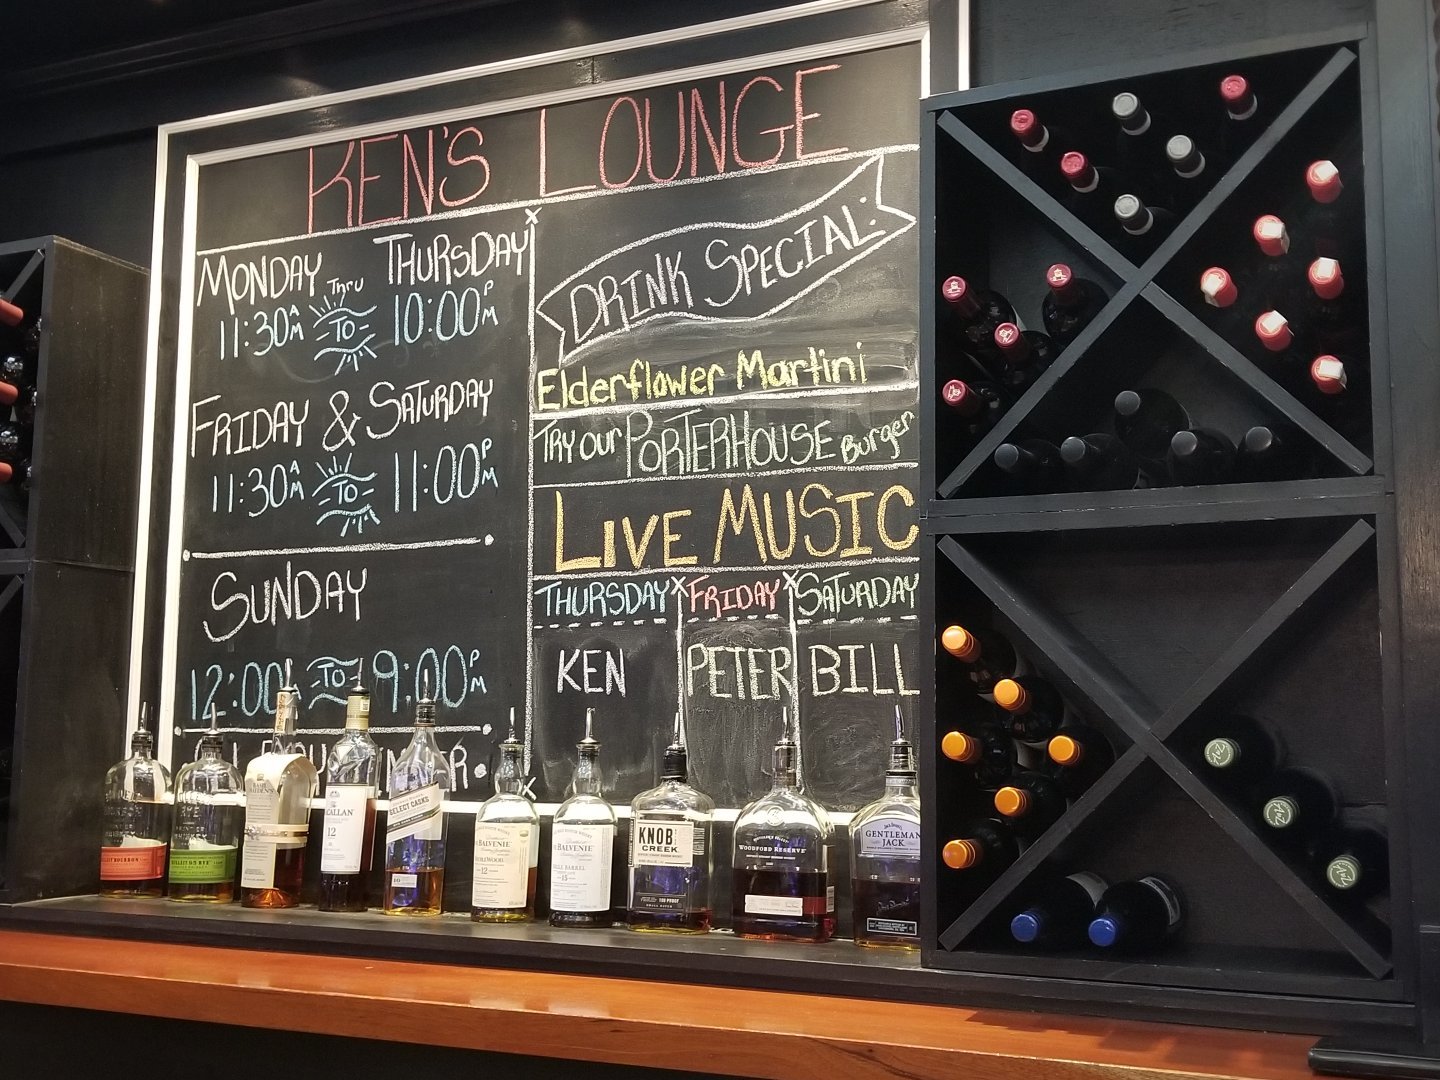 KEN'S LOUNGE
MONDAY Thru THURSDAY
11:30AM TO 10:00PM
FRIDAY & SATURDAY
11:30AM TO 11:00PM
SUNDAY
12:00 TO 9:00PM
DRINK SPECIAL:
Elderflower Martini
TRY OUR PORTERHOUSE Burger
LIVE MUSIC
THURSDAY FRIDAY SATURDAY
KEN PETER BILL
BASIL
HAYDEN'S
MACALLAN
12
SELECT CASKS
BALVENIE
12
BALVENIE
15
KNOB
CREEK
100 PROOF
WOODFORD RESERVE
GENTLEMAN
JACK